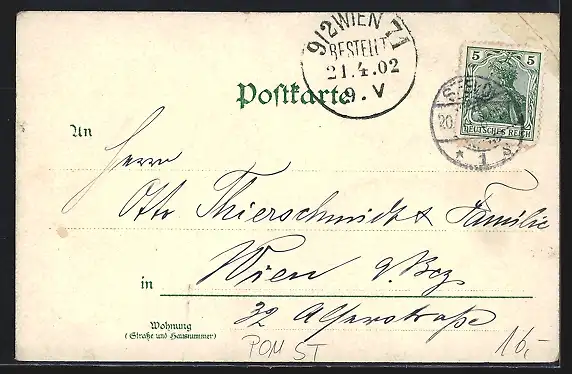 9/2 WIEN 71
BESTELLT
21.4.02
9.V
5 5
DEUTSCHES REICH
20.
* 1 S.
Postkarte
An
Herrn
Otto Thierschmidt & Familie
in Wien 9. Bez
32 Alserstraße
Wohnung
(Straße und Hausnummer)
POM ST
16,-